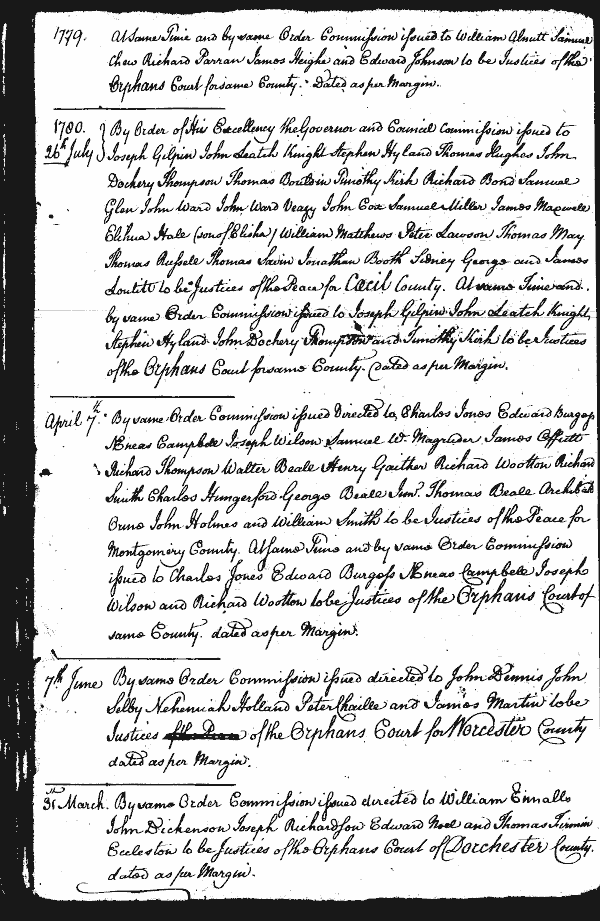 1779. At same Time and by same Order Commission issued to William Alnutt Samuel
Chew Richard Parran James Heighe and Edward Johnson to be Justices of the
Orphans Court for same County. Dated as per Margin.
1780. By Order of His Excellency the Governor and Council Commission issued to
26th July Joseph Gilpin John Leatch Knight Stephen Hyland Thomas Hughes John
Dockery Thompson Thomas Bouldin Timothy Kirk Richard Bond Samuel
Glen John Ward John Ward Veazy John Cox Samuel Miller James Maxwell
Elihua Hale (son of Elisha) William Matthews Peter Lawson Thomas May
Thomas Russell Thomas Savin Jonathan Booth Sidney George and James
to be Justices of the Peace for Cecil County. At same Time and
by same Order Commission issued to Joseph Gilpin John Leatch Knight
Stephen Hyland John Dockery Thompson and Timothy Kirk to be Justices
of the Orphans Court for same County. Dated as per Margin.
April 7th. By same Order Commission issued directed to Charles Jones Edward Burgess
Æneas Campbell Joseph Wilson Samuel W. Magruder James Offutt
Richard Thompson Walter Beale Henry Gaither Richard Wootton Richard
Smith Charles Hungerford George Beale Junr. Thomas Beale Archibald
Orme John Holmes and William Smith to be Justices of the Peace for
Montgomery County. At same Time and by same Order Commission
issued to Charles Jones Edward Burgess Æneas Campbell Joseph
Wilson and Richard Wootton to be Justices of the Orphans Court of
same County. dated as per Margin.
7th June By same Order Commission issued directed to John Dennis John
Selby Nehemiah Holland Peter Chaille and James Martin to be
Justices of the Orphans Court for Worcester County
dated as per Margin.
31st March. By same Order Commission issued directed to William Ennalls
John Dickenson Joseph Richardson Edward Noel and Thomas Firmin
Eccleston to be Justices of the Orphans Court of Dorchester County.
dated as per Margin.